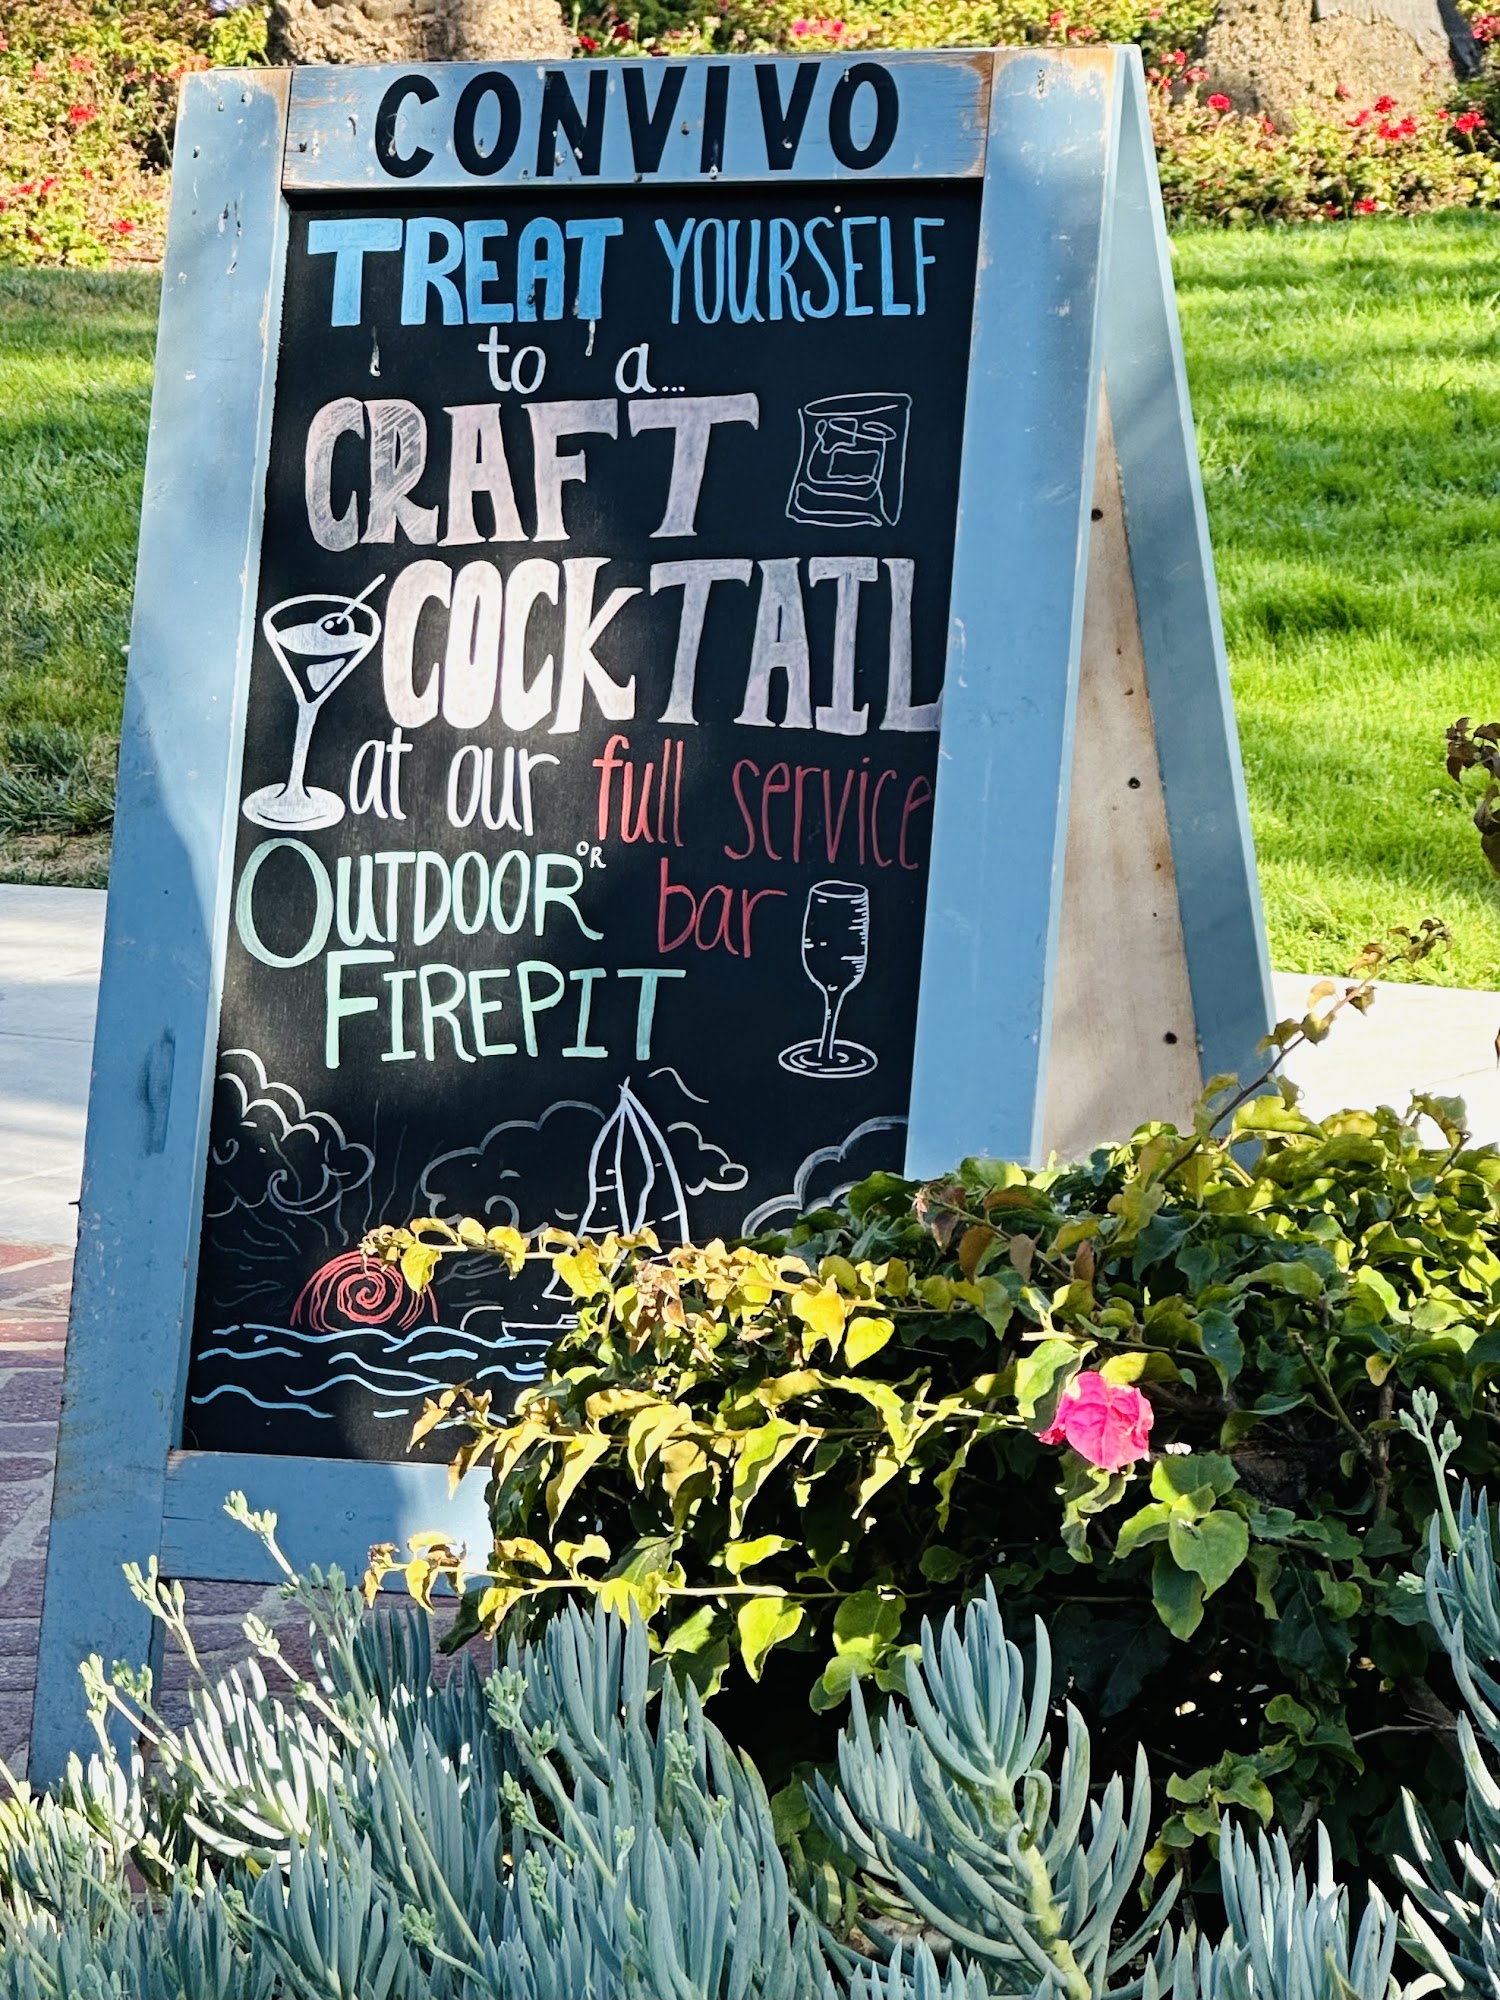 CONVIVO
TREAT YOURSELF
to a...
CRAFT
COCKTAIL
at our full service
OUTDOOR OR bar
FIREPIT